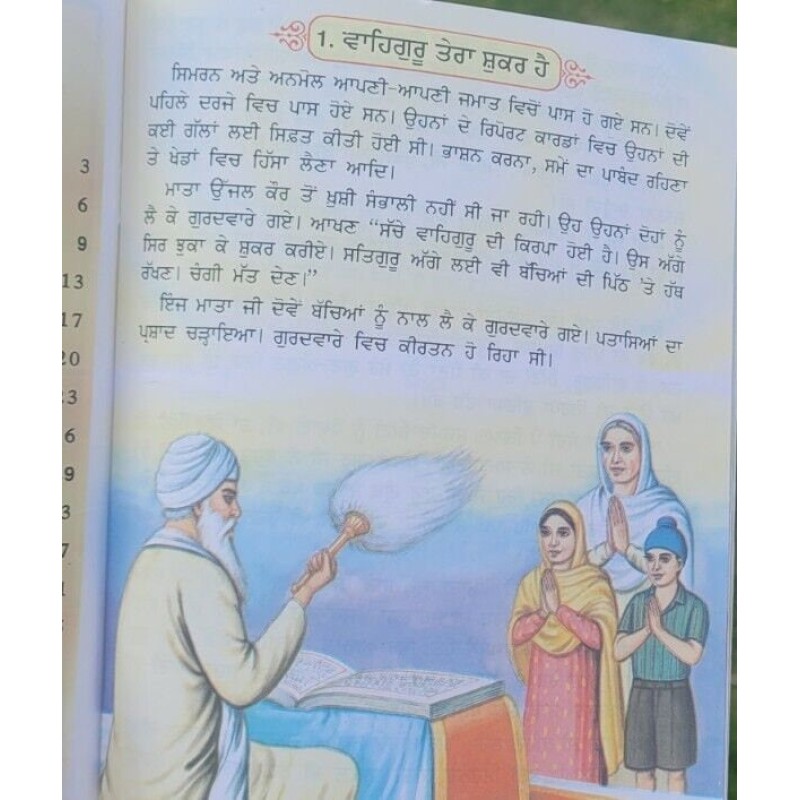 1. ਵਾਹਿਗੁਰੂ ਤੇਰਾ ਸ਼ੁਕਰ ਹੈ
ਸਿਮਰਨ ਅਤੇ ਅਨਮੋਲ ਆਪਣੀ-ਆਪਣੀ ਜਮਾਤ ਵਿਚੋਂ ਪਾਸ ਹੋ ਗਏ ਸਨ। ਦੋਵੇਂ
ਪਹਿਲੇ ਦਰਜੇ ਵਿਚ ਪਾਸ ਹੋਏ ਸਨ। ਉਹਨਾਂ ਦੇ ਰਿਪੋਰਟ ਕਾਰਡਾਂ ਵਿਚ ਉਹਨਾਂ ਦੀ
ਕਈ ਗੱਲਾਂ ਲਈ ਸਿਫ਼ਤ ਕੀਤੀ ਹੋਈ ਸੀ। ਭਾਸ਼ਨ ਕਰਨਾ, ਸਮੇਂ ਦਾ ਪਾਬੰਦ ਰਹਿਣਾ
ਤੇ ਖੇਡਾਂ ਵਿਚ ਹਿੱਸਾ ਲੈਣਾ ਆਦਿ।
ਮਾਤਾ ਉੱਜਲ ਕੌਰ ਤੋਂ ਖ਼ੁਸ਼ੀ ਸੰਭਾਲੀ ਨਹੀਂ ਸੀ ਜਾ ਰਹੀ। ਉਹ ਉਹਨਾਂ ਦੋਹਾਂ ਨੂੰ
ਲੈ ਕੇ ਗੁਰਦਵਾਰੇ ਗਏ। ਆਖਣ “ਸੱਚੇ ਵਾਹਿਗੁਰੂ ਦੀ ਕਿਰਪਾ ਹੋਈ ਹੈ। ਉਸ ਅੱਗੇ
ਸਿਰ ਝੁਕਾ ਕੇ ਸ਼ੁਕਰ ਕਰੀਏ। ਸਤਿਗੁਰੂ ਅੱਗੇ ਲਈ ਵੀ ਬੱਚਿਆਂ ਦੀ ਪਿੱਠ 'ਤੇ ਹੱਥ
ਰੱਖਣ। ਚੰਗੀ ਮੱਤ ਦੇਣ।”
ਇੰਜ ਮਾਤਾ ਜੀ ਦੋਵੇਂ ਬੱਚਿਆਂ ਨੂੰ ਨਾਲ ਲੈ ਕੇ ਗੁਰਦਵਾਰੇ ਗਏ। ਪਤਾਸਿਆਂ ਦਾ
ਪ੍ਰਸ਼ਾਦ ਚੜ੍ਹਾਇਆ। ਗੁਰਦਵਾਰੇ ਵਿਚ ਕੀਰਤਨ ਹੋ ਰਿਹਾ ਸੀ।
3
6
9
13
17